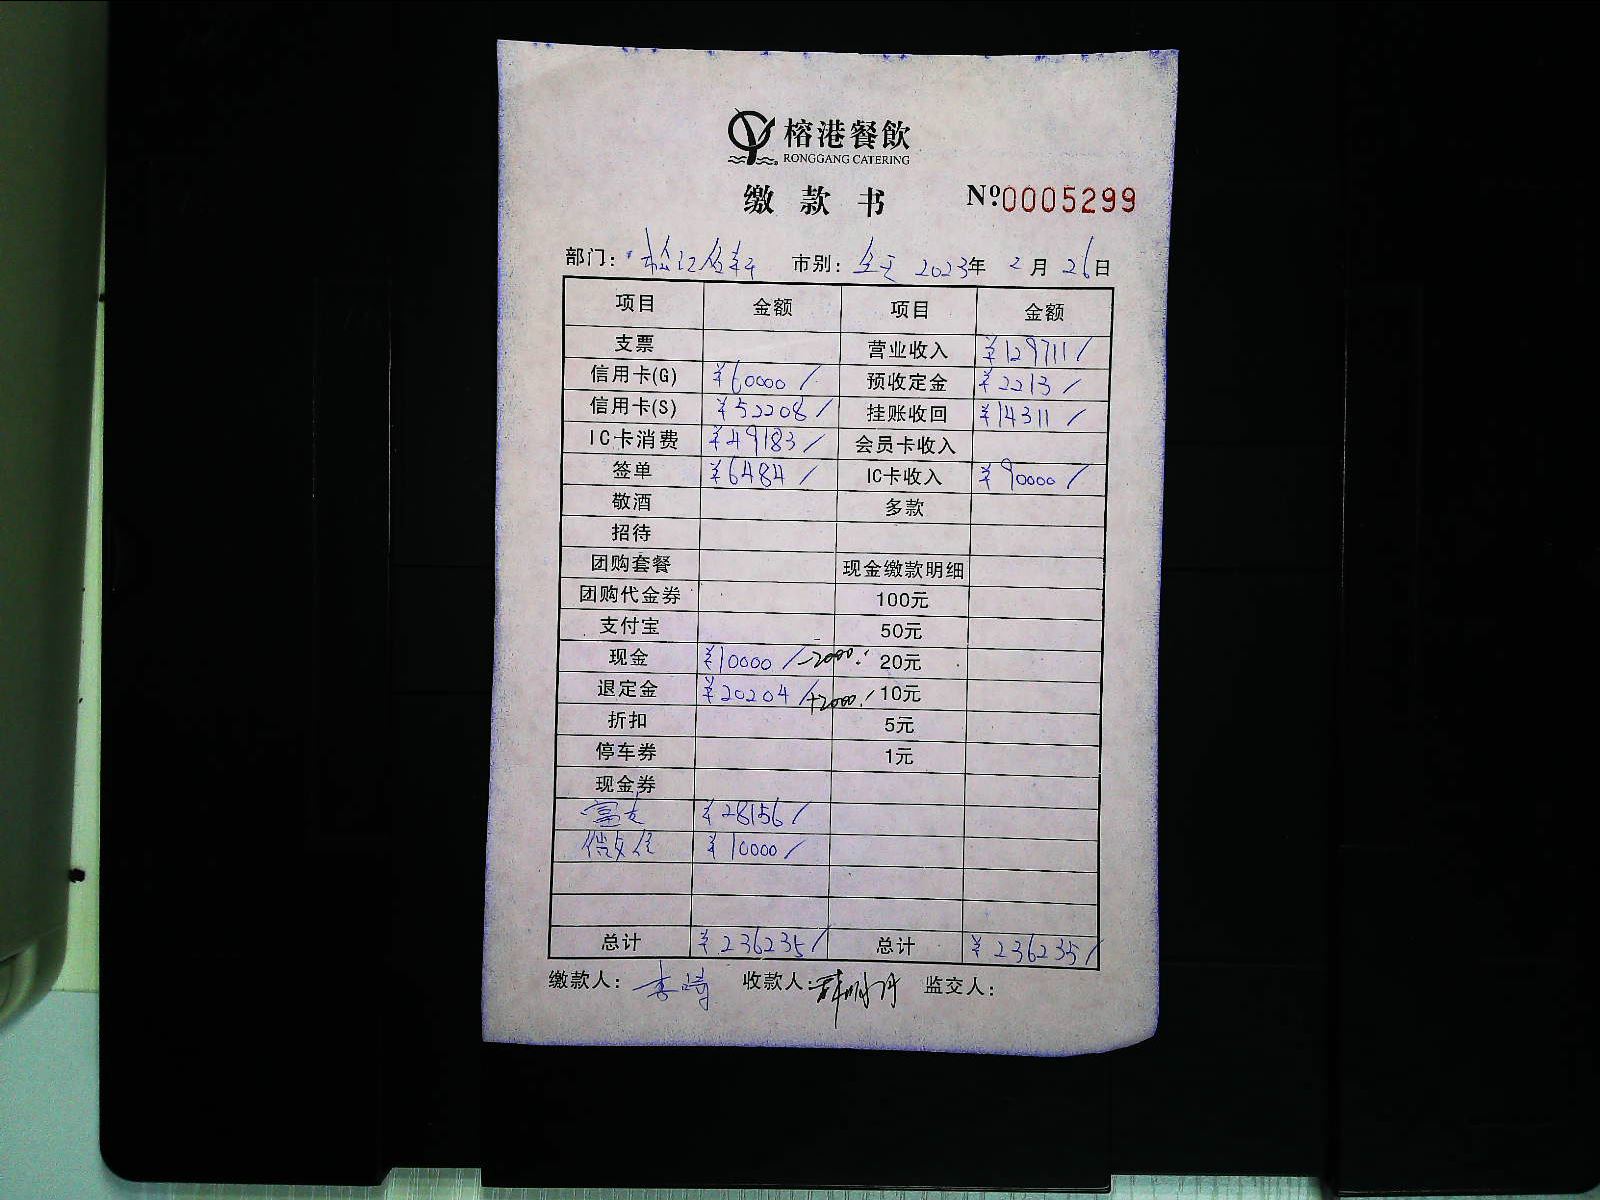 榕港餐飲
RONGGANG CATERING
缴款书 Nº:0005299
部门: 市别: 全天 2023年 2月 26日
项目 金额 项目 金额
支票 营业收入 ¥129711/
信用卡(G) ¥60000/ 预收定金 ¥2213/
信用卡(S) ¥52208/ 挂账收回 ¥14311/
IC卡消费 ¥49183/ 会员卡收入
签单 ¥6484/ IC卡收入 ¥90000/
敬酒 多款
招待
团购套餐 现金缴款明细
团购代金券 100元
支付宝 50元
现金 ¥10000/-2000. 20元
退定金 ¥20204/+2000. 10元
折扣 5元
停车券 1元
现金券
富友 ¥28156/
微信 ¥10000/
总计 ¥236235/ 总计 ¥236235/
缴款人: 李琦 收款人: 监交人: